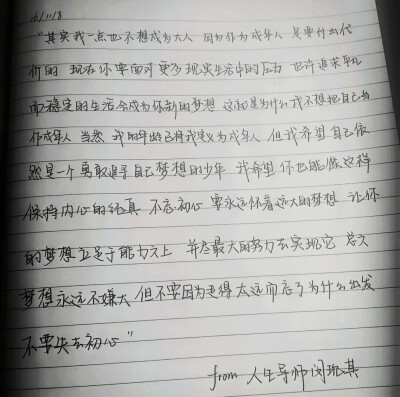 16/11/8
"其实我一点也不想成为大人 因为作为成年人 是要付出代
价的 现在你要面对更多现实生活中的压力 也许追求平凡
而稳定的生活会成为你新的梦想 这就是为什么我不想把自己当
作成年人 当然 我的年龄已将我定义为成年人 但我希望自己依
然是一个勇敢追寻自己梦想的少年 我希望你也能像这样
保持内心的纯真 不忘初心 要永远怀着远大的梦想 让你
的梦想立足于能力之上 并尽最大的努力去实现它 总之
梦想永远不嫌大 但不要因为走得太远而忘了为什么出发
不要失去初心"
from 人生导师闵玧其